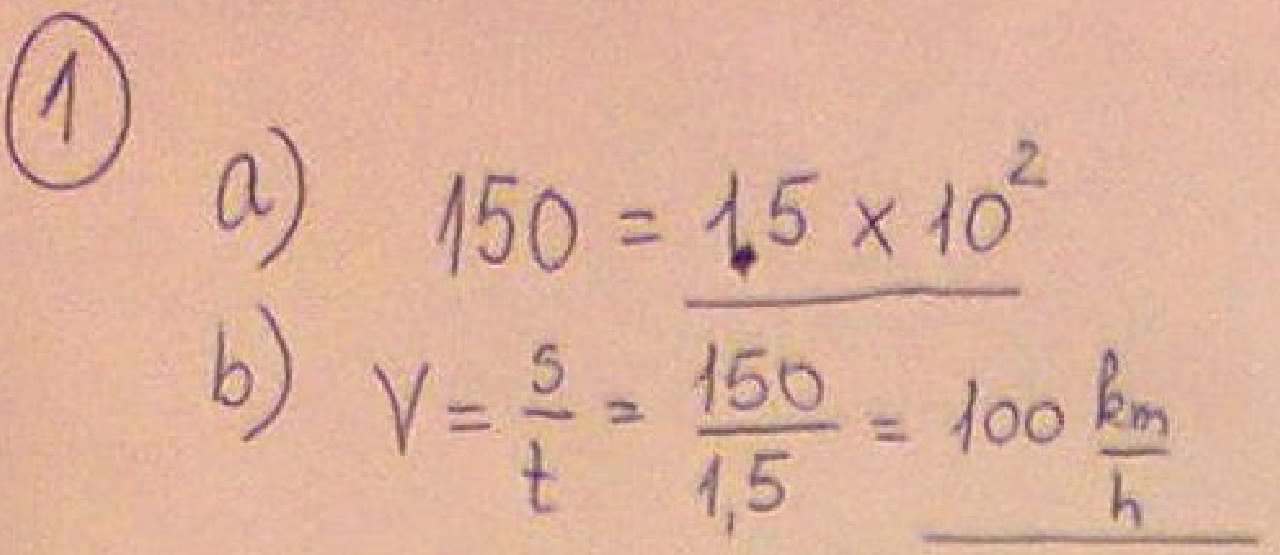 1
a) 150 = 1.5 × 10²
b) V = s/t = 150/1,5 = 100 km/h